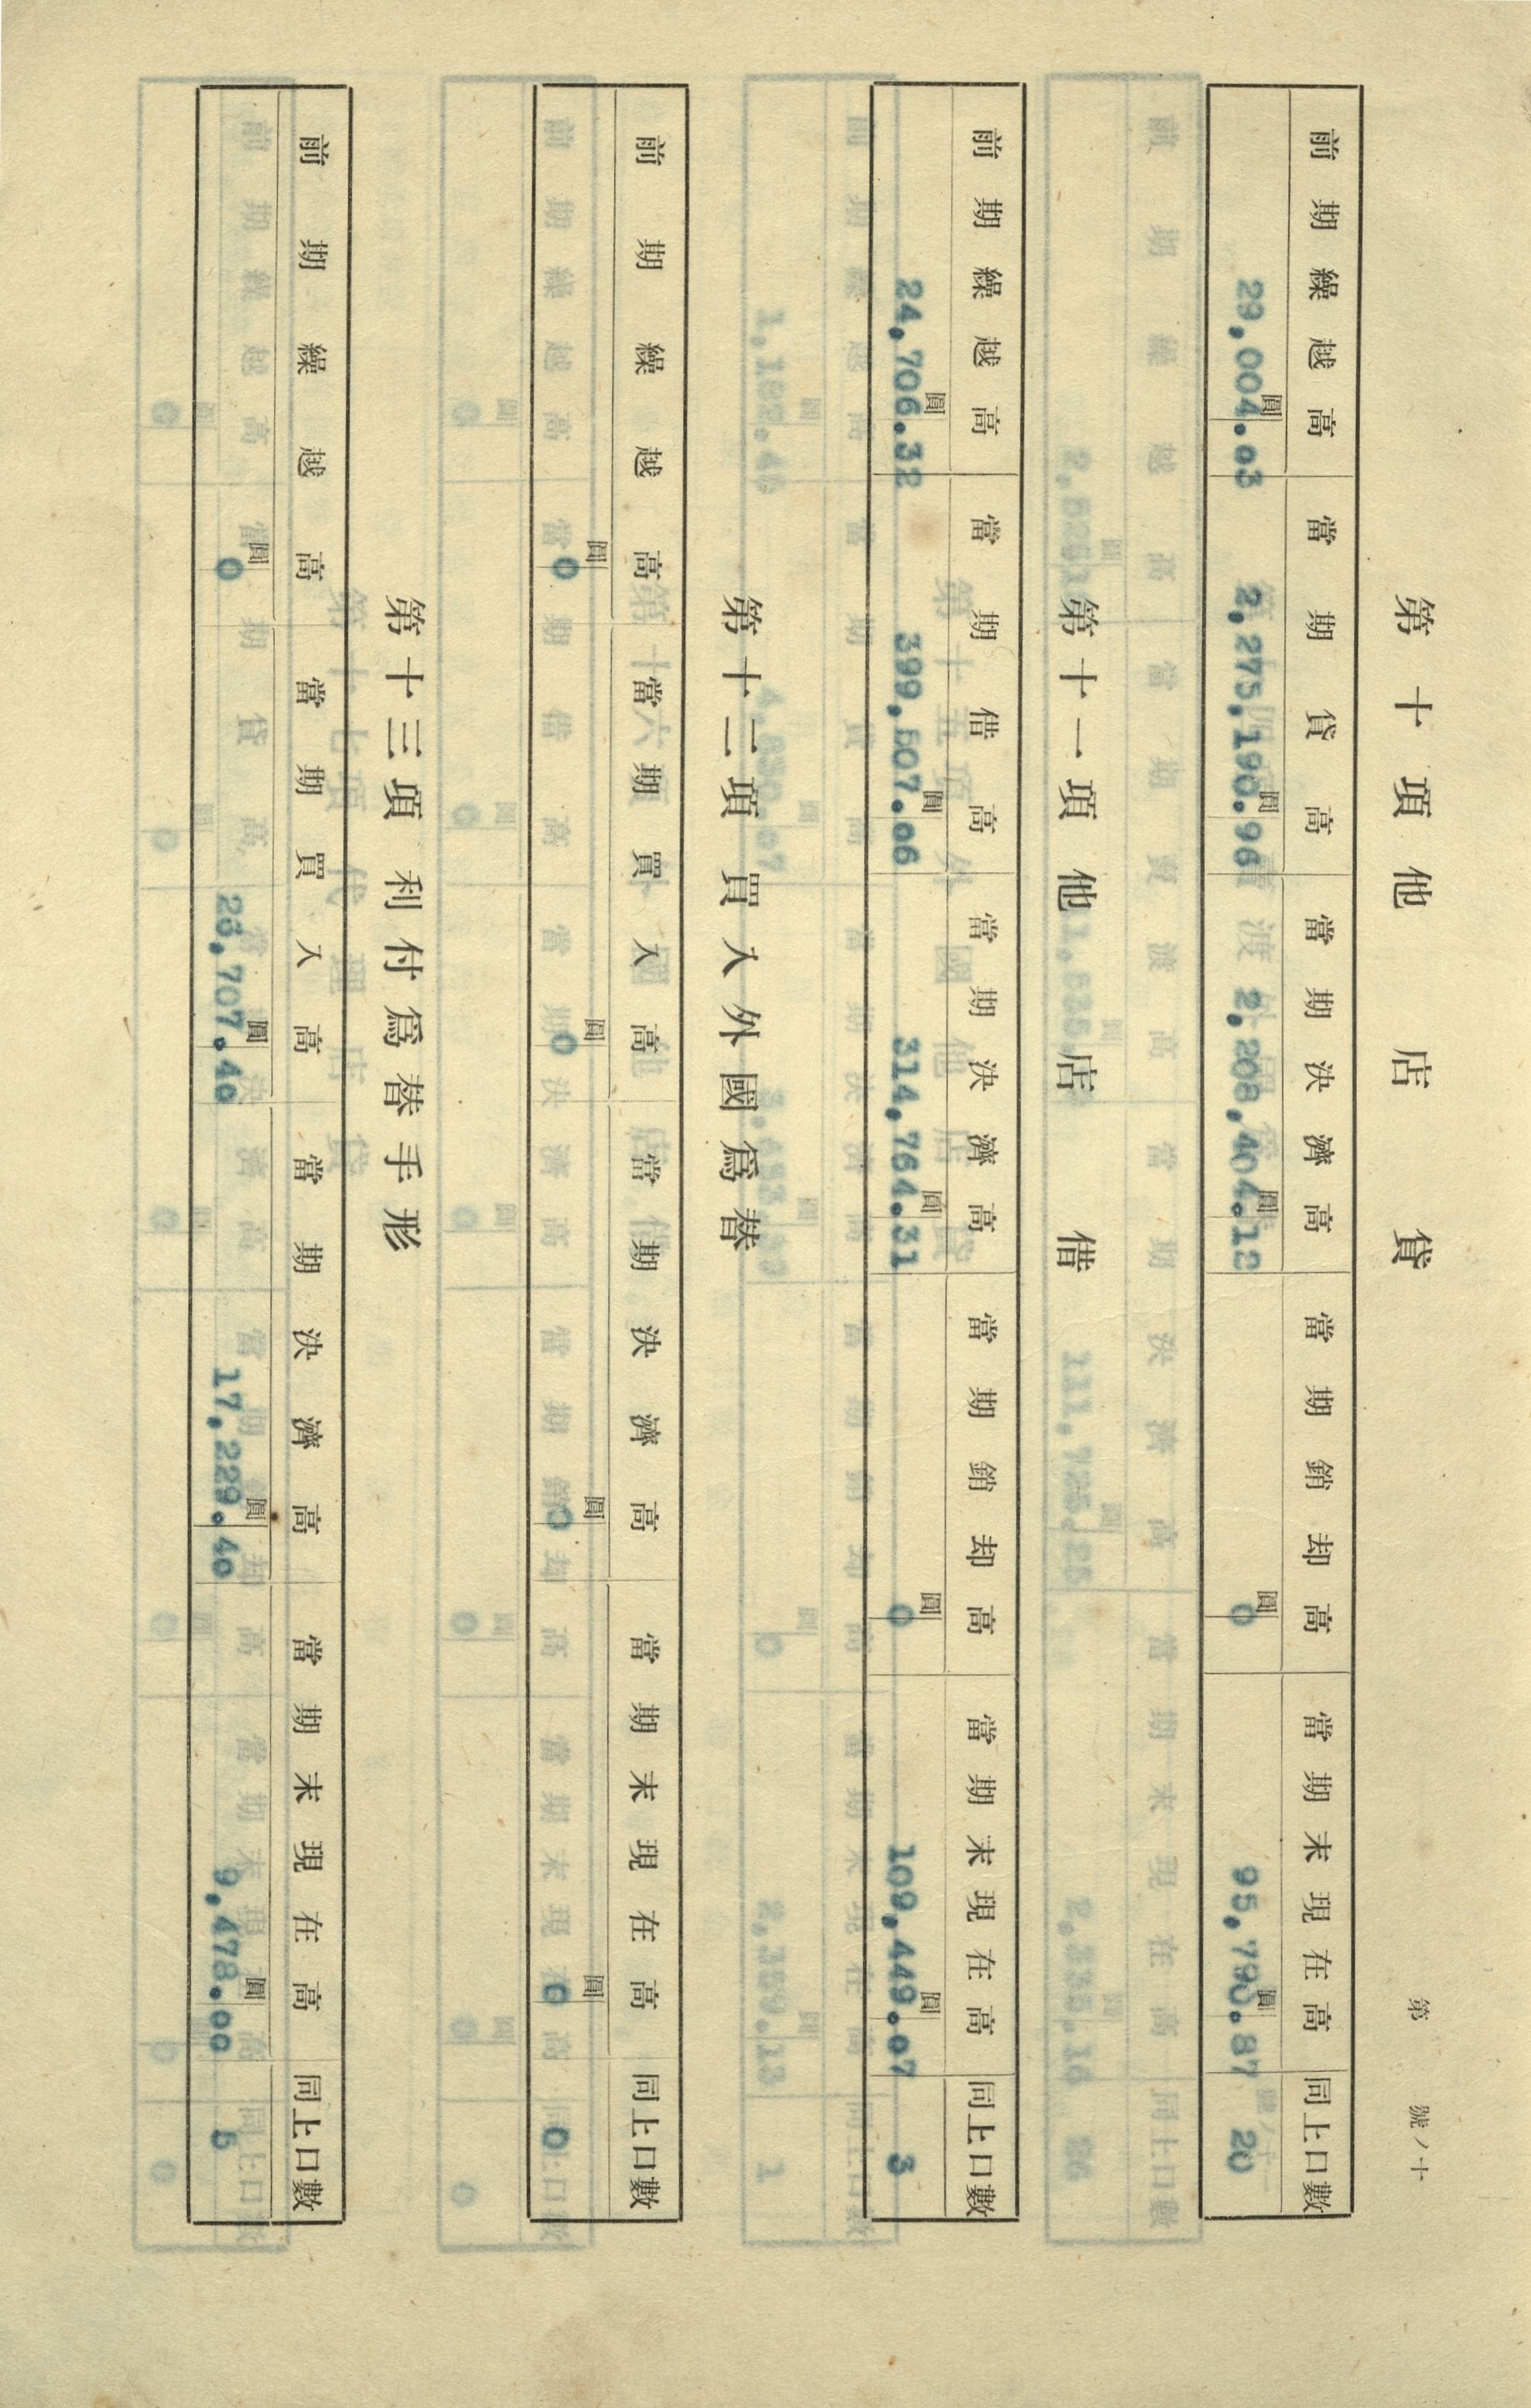 第 號ノ十
第十項 他店貸
前期繰越高 當期貸高 當期決濟高 當期銷却高 當期末現在高 同上口數
圓 圓 圓 圓 圓
29,004.03 2,275,190.96 2,208,404.12 0 95,790.87 20
第十一項 他店借
前期繰越高 當期借高 當期決濟高 當期銷却高 當期末現在高 同上口數
圓 圓 圓 圓 圓
24,706.32 399,507.06 314,764.31 0 109,449.07 3
第十二項 買入外國爲替
前期繰越高 當期買入高 當期決濟高 當期末現在高 同上口數
圓 圓 圓 圓
0 0 0 0 0
第十三項 利付爲替手形
前期繰越高 當期買入高 當期決濟高 當期末現在高 同上口數
圓 圓 圓 圓
0 26,707.40 17,229.40 9,478.00 5